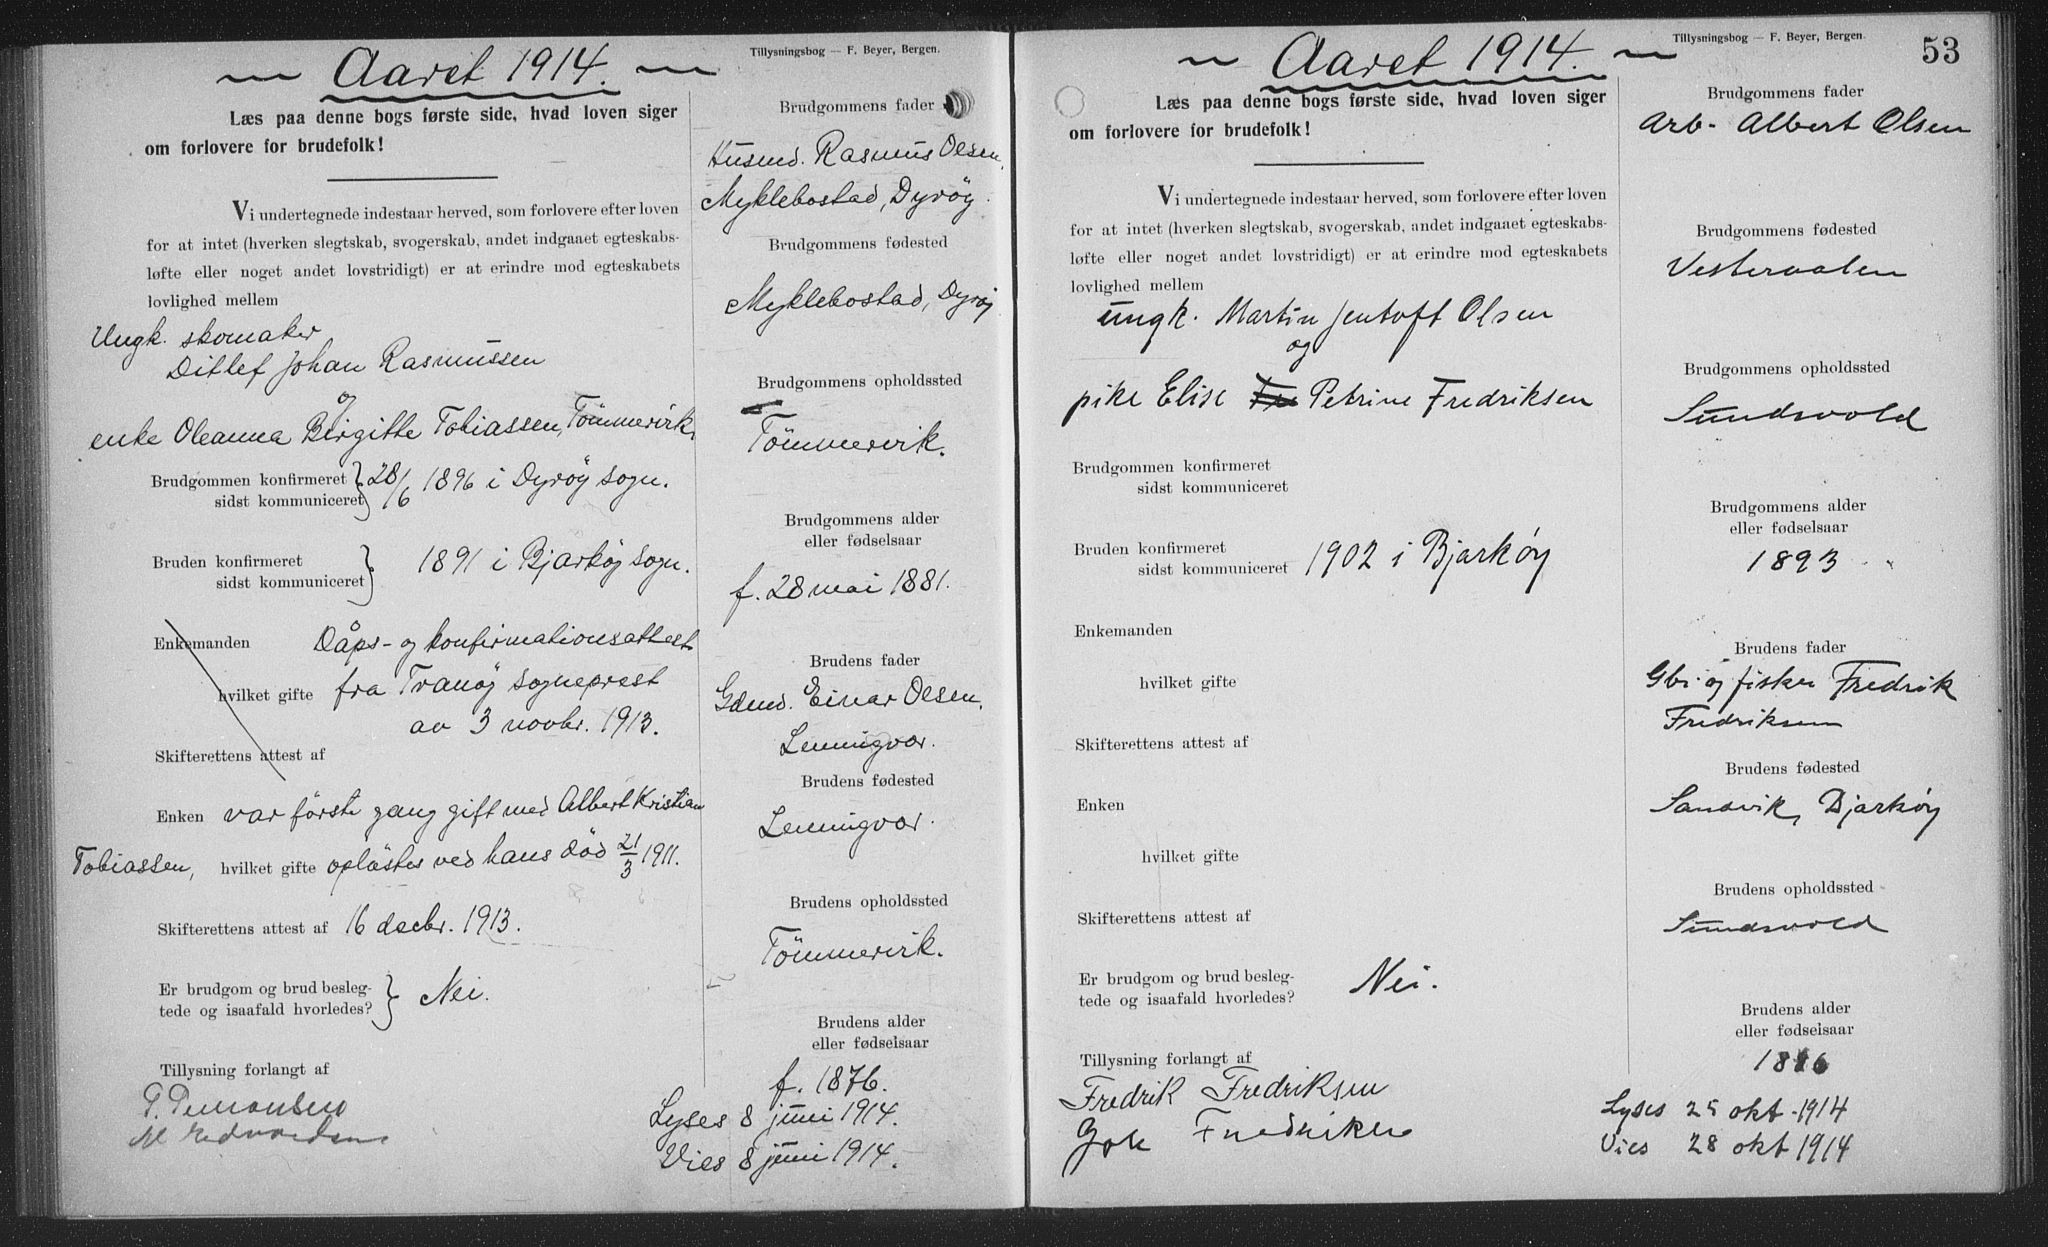 Aaret 1914.
Tillysningsbog — F. Beyer, Bergen.
Læs paa denne bogs første side, hvad loven siger
om forlovere for brudefolk!
Vi undertegnede indestaar herved, som forlovere efter loven
for at intet (hverken slegtskab, svogerskab, andet indgaaet egteskabs-
løfte eller noget andet lovstridigt) er at erindre mod egteskabets
lovlighed mellem
Ungk. skomaker
Ditlef Johan Rasmussen
og
enke Oleanna Birgitte Tobiassen, Tömmervik.
Brudgommen konfirmeret
sidst kommuniceret
28/6 1896 i Dyröy sogn.
Bruden konfirmeret
sidst kommuniceret
1891 i Bjarköy sogn.
Enkemanden
Dåps- og konfirmationsattest
hvilket gifte
fra Tranöy sogneprest
av 3 novbr. 1913.
Skifterettens attest af
Enken var förste gang gift med Albert Kristian
Tobiassen, hvilket gifte oplöstes ved hans död 21/3 1911.
Skifterettens attest af 16 decbr. 1913.
Er brudgom og brud besleg-
tede og isaafald hvorledes?
Nei.
Tillysning forlangt af
Brudgommens fader
Husmd. Rasmus Olsen,
Myklebostad, Dyröy.
Brudgommens fødested
Myklebostad, Dyröy
Brudgommens opholdssted
Tömmervik.
Brudgommens alder
eller fødselsaar
f. 28 mai 1881.
Brudens fader
Gdmd. Einar Olsen,
Lemmingvær.
Brudens fødested
Lemmingvær.
Brudens opholdssted
Tömmervik.
Brudens alder
eller fødselsaar
f. 1876.
Lyses 8 juni 1914.
Vies 8 juni 1914.
Aaret 1914.
Tillysningsbog — F. Beyer, Bergen.
53
Læs paa denne bogs første side, hvad loven siger
om forlovere for brudefolk!
Vi undertegnede indestaar herved, som forlovere efter loven
for at intet (hverken slegtskab, svogerskab, andet indgaaet egteskabs-
løfte eller noget andet lovstridigt) er at erindre mod egteskabets
lovlighed mellem
ungk. Martin Jentoft Olsen
og
pike Elise Petrine Fredriksen
Brudgommen konfirmeret
sidst kommuniceret
Bruden konfirmeret
sidst kommuniceret
1902 i Bjarköy
Enkemanden
hvilket gifte
Skifterettens attest af
Enken
hvilket gifte
Skifterettens attest af
Er brudgom og brud besleg-
tede og isaafald hvorledes?
Nei.
Tillysning forlangt af
Fredrik Fredriksen
Brudgommens fader
Arb. Albert Olsen
Brudgommens fødested
Vesteraalen
Brudgommens opholdssted
Sundsvold
Brudgommens alder
eller fødselsaar
1893
Brudens fader
Gbr. og fisker Fredrik
Fredriksen
Brudens fødested
Sandvik, Bjarköy
Brudens opholdssted
Sundsvold
Brudens alder
eller fødselsaar
Lyses 25 okt. 1914
Vies 28 okt 1914